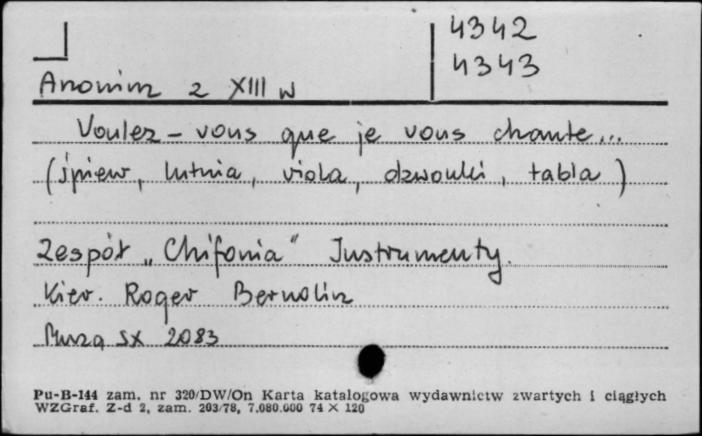 4342
4343
Anonim z XIII w
Voulez-vous que je vous chante...
(śpiew, lutnia, viola, dzwonki, tabla)
Zespół „Chifonia" Instrumenty.
Kier. Roger Bernolin
Muza SX 2083
Pu-B-144 zam. nr 320/DW/On Karta katalogowa wydawnictw zwartych i ciągłych
WZGraf. Z-d 2, zam. 203/78, 7.080.000 74 × 120